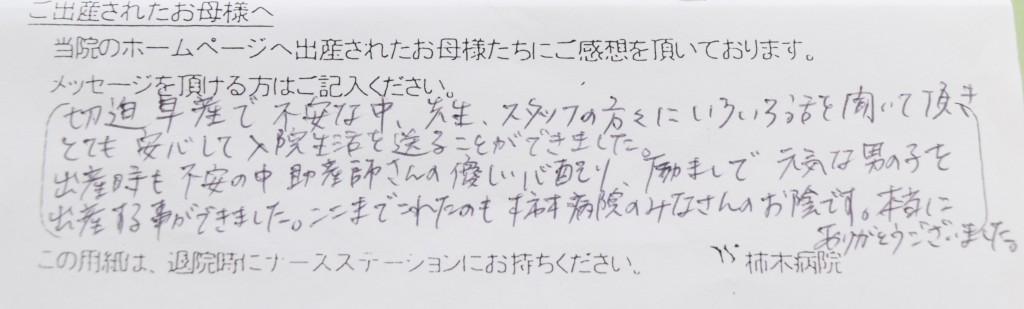 ご出産されたお母様へ
当院のホームページへ出産されたお母様たちにご感想を頂いております。
メッセージを頂ける方はご記入ください。
切迫早産で不安な中、先生、スタッフの方々にいろいろ話を聞いて頂き
とても安心して入院生活を送ることができました。
出産時も不安の中助産師さんの優しい心配り、励ましで元気な男の子を
出産する事ができました。ここまでこれたのも柿木病院のみなさんのお陰です。本当に
ありがとうございました。
この用紙は、退院時にナースステーションにお持ちください。 柿木病院